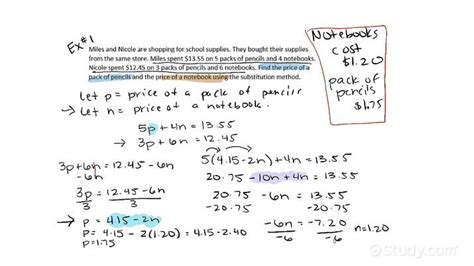 Ex#1
Miles and Nicole are shopping for school supplies. They bought their supplies
from the same store. Miles spent $13.55 on 5 packs of pencils and 4 notebooks.
Nicole spent $12.45 on 3 packs of pencils and 6 notebooks. Find the price of a
pack of pencils and the price of a notebook using the substitution method.
Notebooks
cost
$1.20
pack of
pencils
$1.75
Let p = price of a pack of pencils
→ Let n = price of a notebook.
5p + 4n = 13.55
→ 3p + 6n = 12.45
3p + 6n = 12.45 - 6n
-6n
3p = 12.45 - 6n
3 3
→ p = 4.15 - 2n
p = 4.15 - 2(1.20) = 4.15 - 2.40
p = 1.75
5(4.15 - 2n) + 4n = 13.55
20.75 - 10n + 4n = 13.55
20.75 - 6n = 13.55
-20.75 -20.75
-6n = -7.20 n=1.20
-6 -6
Study.com